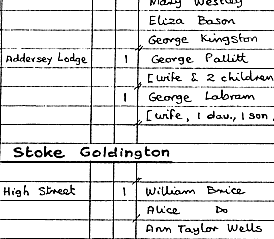 Mary Westley
Eliza Bason
George Kingston
Addersey Lodge 1 George Pallitt
[wife & 2 children
1 George Labram
[wife, 1 dau., 1 son,
Stoke Goldington
High Street 1 William Brice
Alice Do
Ann Taylor Wells